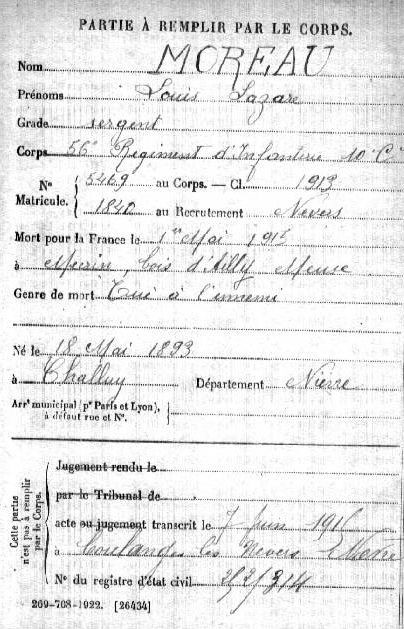 PARTIE À REMPLIR PAR LE CORPS.
Nom MOREAU
Prénoms Louis Lazare
Grade sergent
Corps 56e Régiment d'Infanterie 10e Cie
No Matricule. { 5469 au Corps. — Cl. 1913
1840 au Recrutement Nevers
Mort pour la France le 1er Mai 1915
à Mécrin, bois d'Ailly Meuse
Genre de mort Tué à l'ennemi
Né le 18 Mai 1893
à Challuy Département Nièvre
Arrt municipal (pr Paris et Lyon),
à défaut rue et No.
Cette partie n'est pas à remplir par le Corps.
Jugement rendu le
par le Tribunal de
acte ou jugement transcrit le 7 Juin 1916
à Coulanges les Nevers Nièvre
No du registre d'état civil
269-708-1922. [26434]